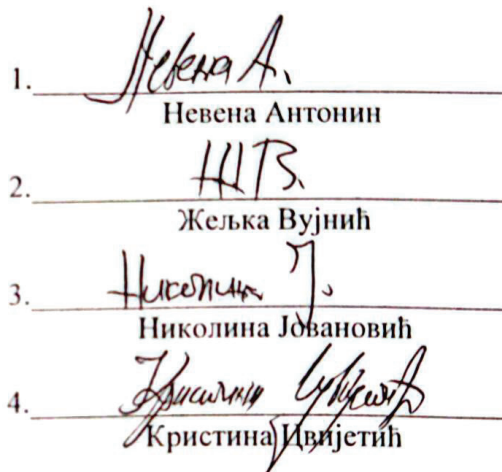 1. Невена А.
Невена Антонин
2. Ж В.
Жељка Вујнић
3. Николина Ј.
Николина Јовановић
4. Кристина Цвијетић
Кристина Цвијетић